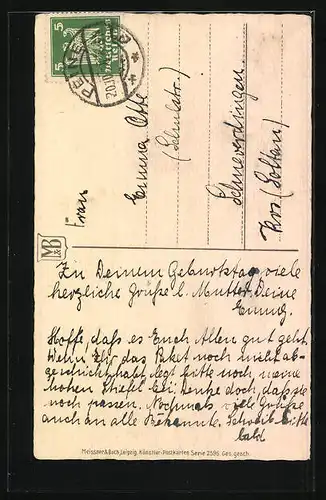 5 Deutsches Reich 5
PEINE
20.
Frau
Emma Otte
(Schulstr.)
Schneverdingen.
Krs. (Soltau)
M&B
Zu Deinem Geburtstag viele
herzliche Grüße l. Mutter. Deine
Emmy.
Hoffe, daß es Euch Allen gut geht.
Wenn Ihr das Paket noch nicht ab-
geschickt habt, legt bitte noch meine
hohen Stiefel bei, denke doch, daß sie
noch passen. Nochmals viele Grüße
auch an alle Bekannte. Schreib bitte
bald.
Meissner & Buch, Leipzig. Künstler-Postkarten Serie 2596. Ges. gesch.